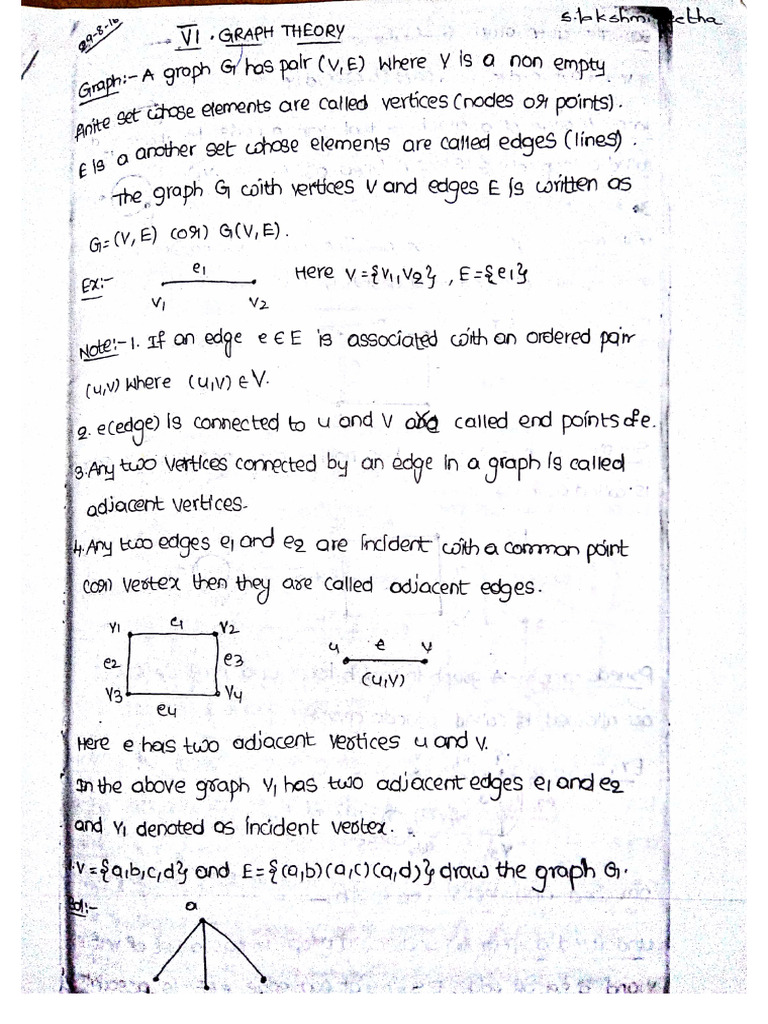 29-8-16
S.lakshmi
VI. GRAPH THEORY
Graph:- A graph G has pair (V,E) where V is a non empty
finite set whose elements are called vertices (nodes or points).
E is a another set whose elements are called edges (lines).
The graph G with vertices V and edges E is written as
G=(V,E) (or) G(V,E).
Ex:- e1 Here V={V1,V2}, E={e1}
V1 V2
Note:- 1. If an edge e∈E is associated with an ordered pair
(u,v) where (u,v)∈V.
2. e(edge) is connected to u and v are called end points of e.
3. Any two vertices connected by an edge in a graph is called
adjacent vertices.
4. Any two edges e1 and e2 are incident with a common point
(or) vertex then they are called adjacent edges.
V1 e1 V2
u e v
e2 e3
(u,v)
V3 V4
e4
Here e has two adjacent vertices u and v.
In the above graph V1 has two adjacent edges e1 and e2
and V1 denoted as incident vertex.
V={a,b,c,d} and E={(a,b)(a,c)(a,d)} draw the graph G.
Sol:- a